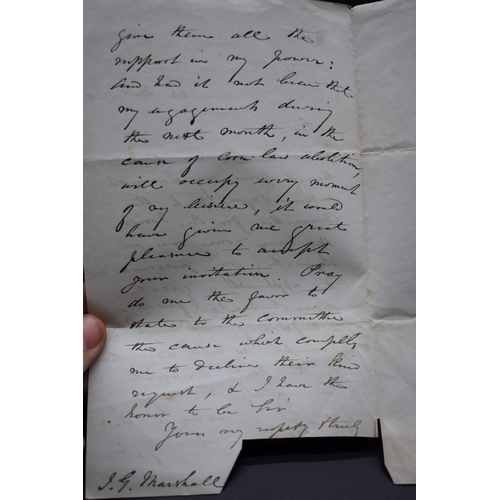 give them all the
support in my power:
and had it not been that
my engagements during
the next month, in the
cause of Corn law abolition,
will occupy every moment
of my leisure, it would
have given me great
pleasure to accept
your invitation. Pray
do me the favor to
state to the committee
the cause which compels
me to decline their kind
request, & I have the
honor to be Sir
Yours very truly
J. G. Marshall